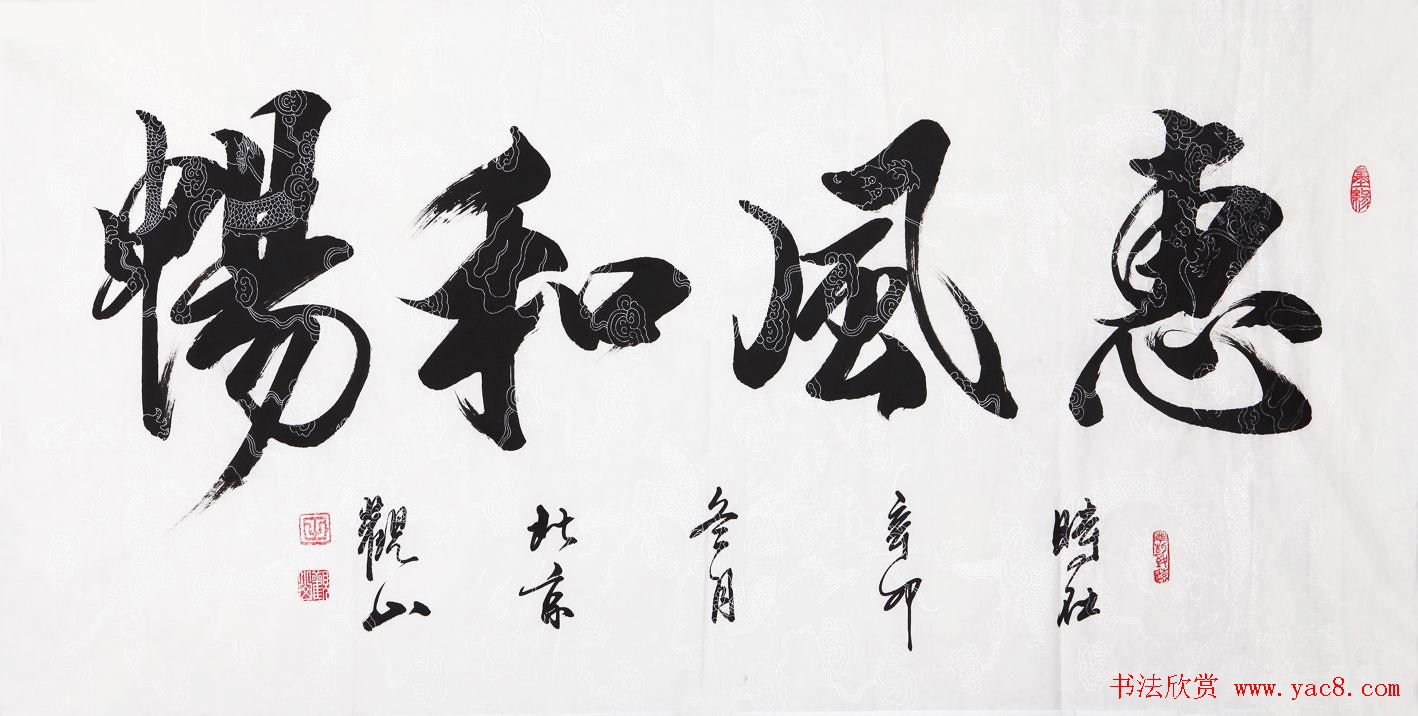 惠風和暢
時在
辛卯
冬月
北京
觀山
墨緣
书法欣赏 www.yac8.com